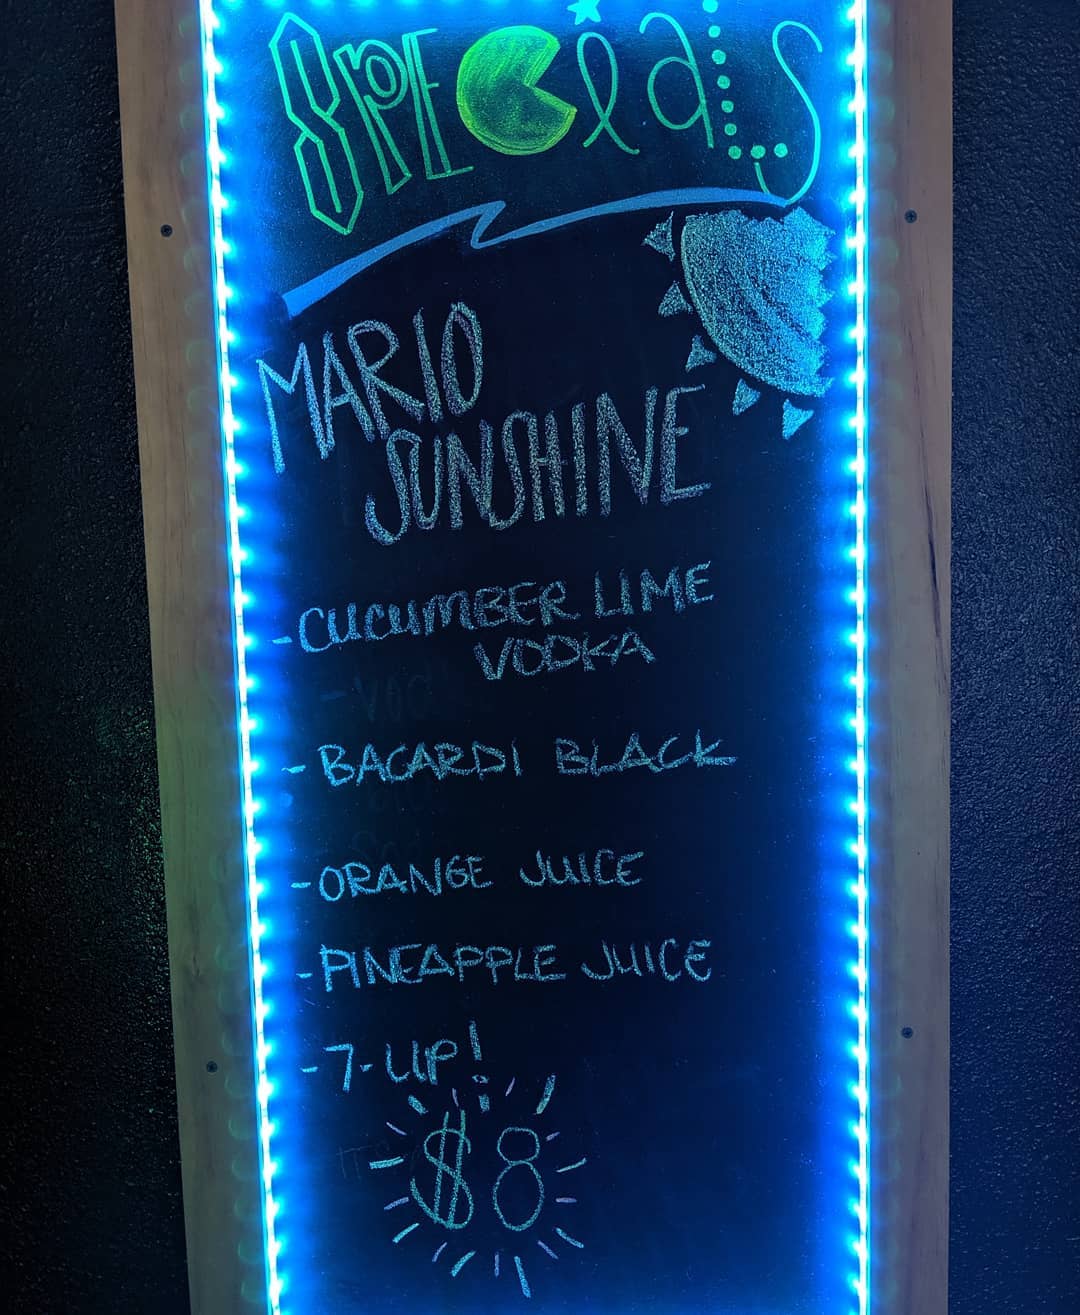 SPECiaLS
MARIO
SUNSHINE
-CUCUMBER LIME
VODKA
-BACARDI BLACK
-ORANGE JUICE
-PINEAPPLE JUICE
-7-UP!
$8